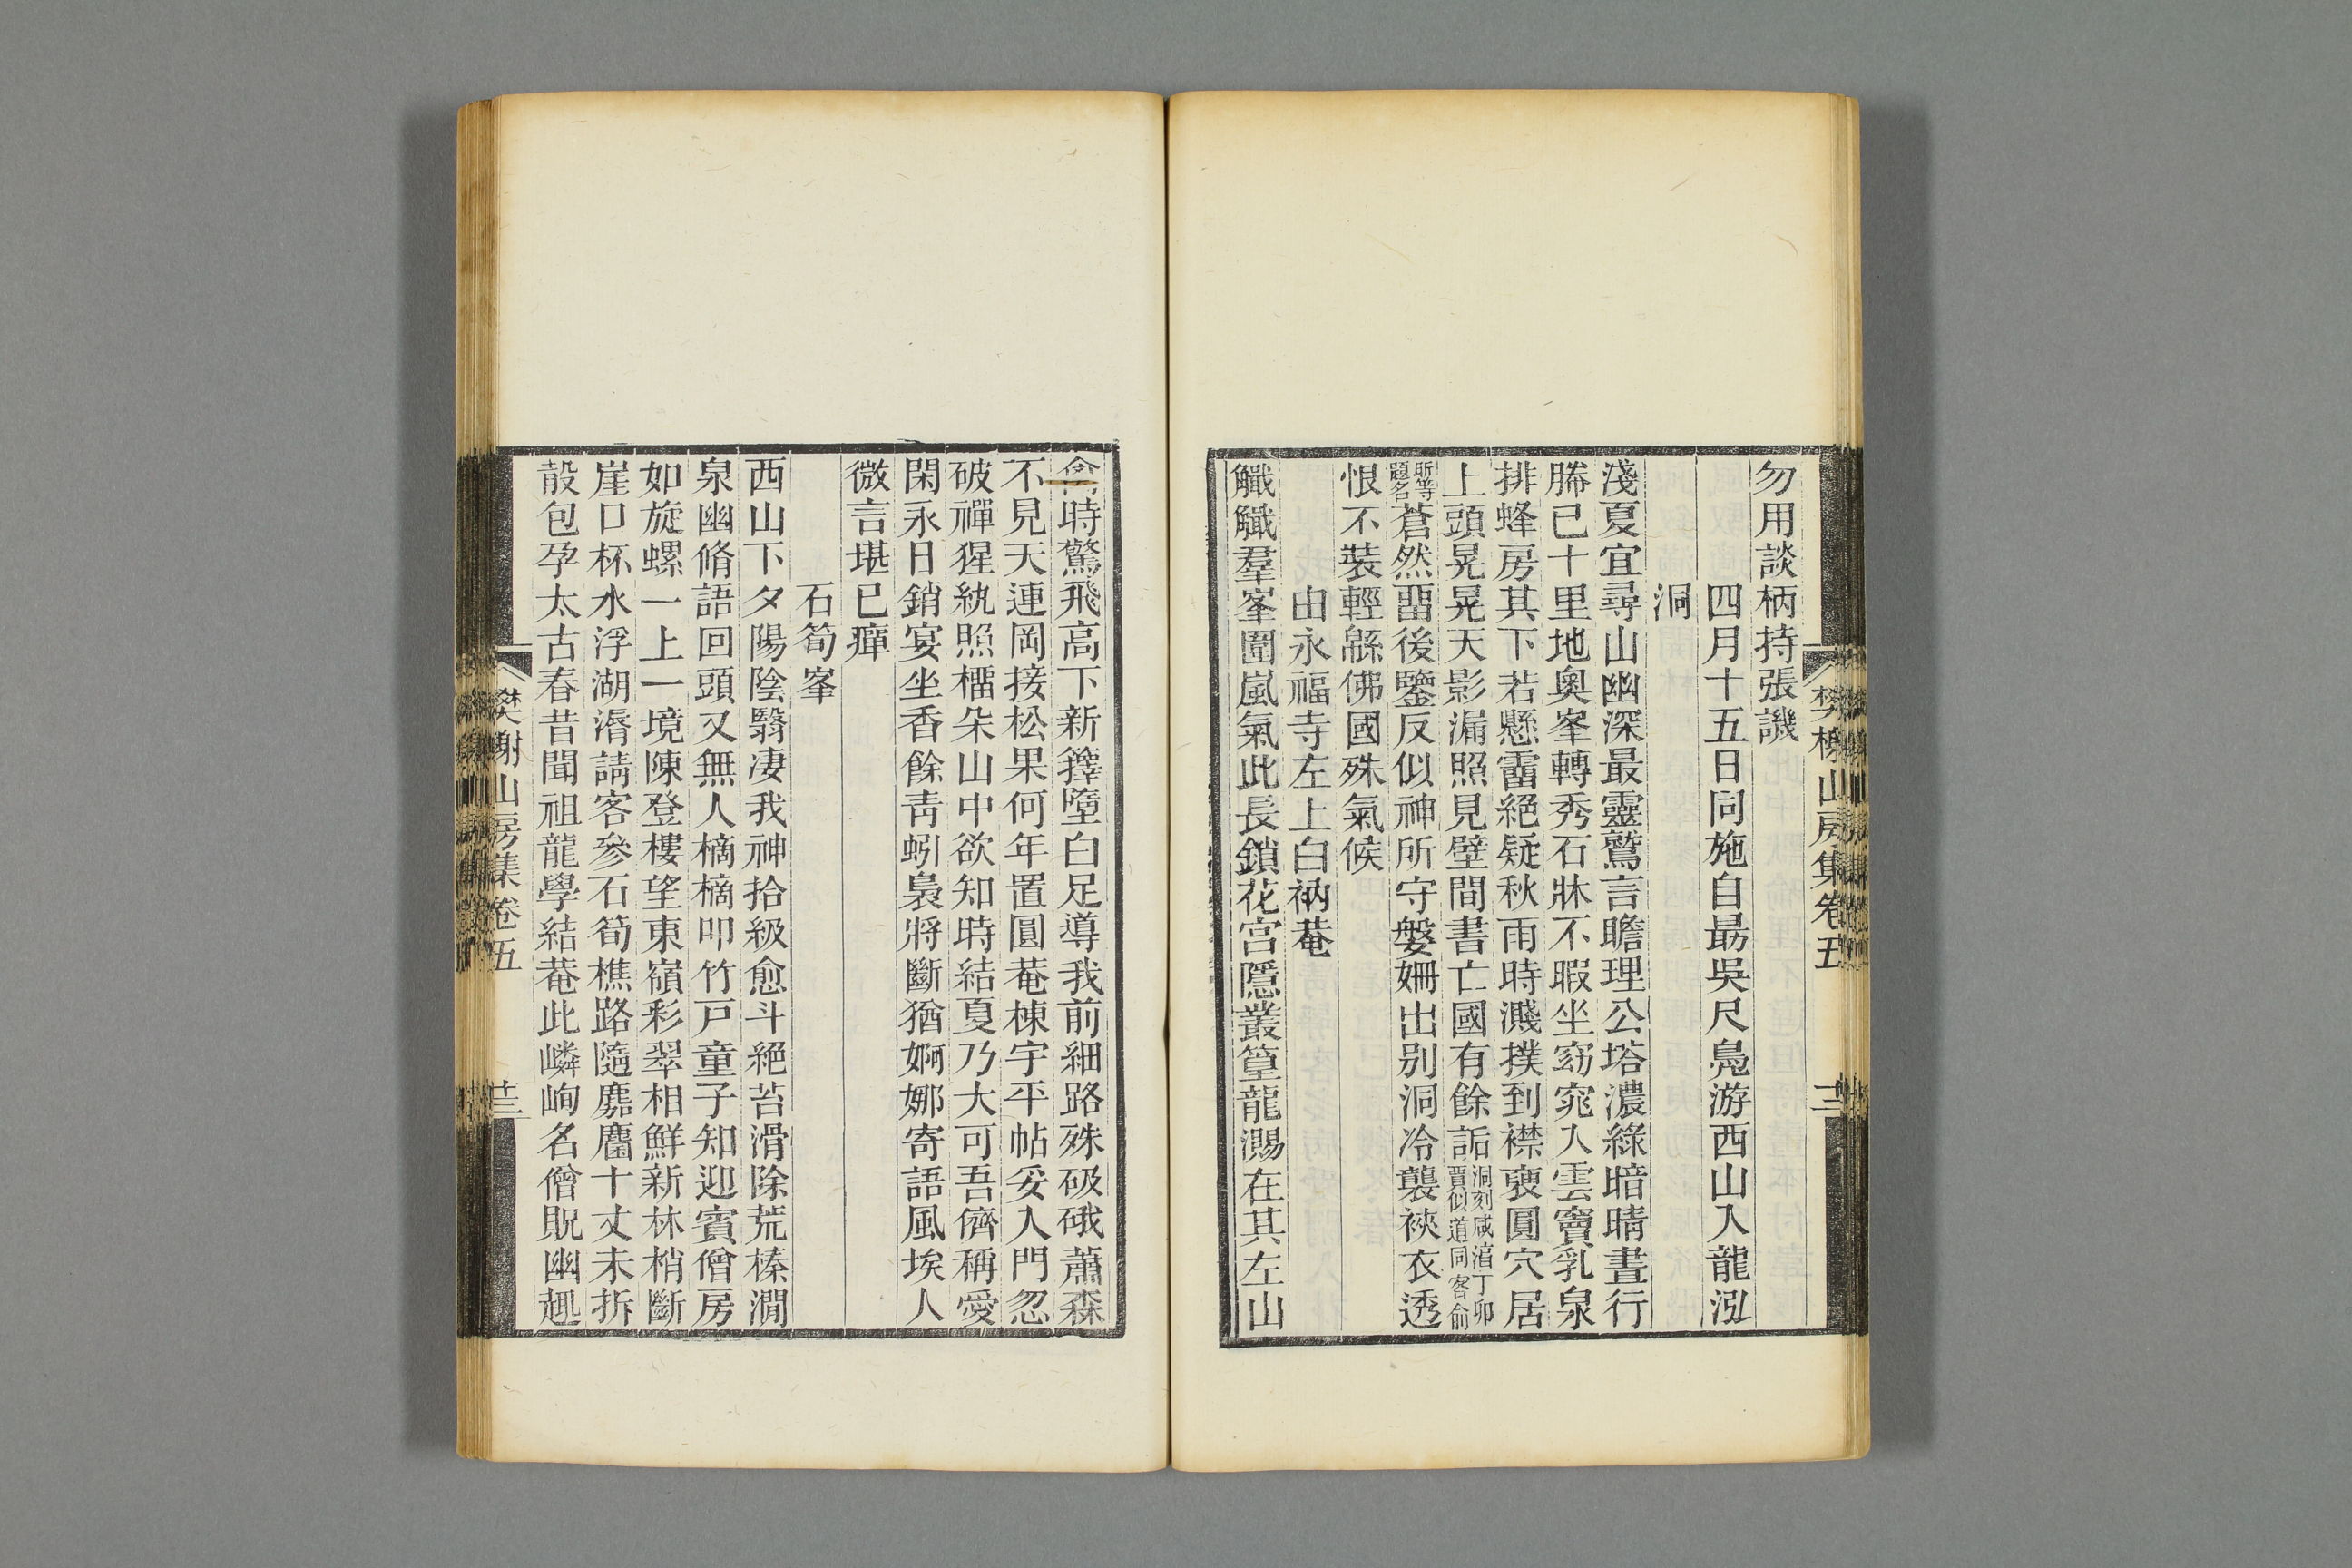 勿用談柄持張譏
四月十五日同施自勗吳尺鳧游西山入龍泓
洞
淺夏宜尋山幽深最靈鷲言瞻理公塔濃綠暗晴晝行
勝已十里地奧峯轉秀石牀不暇坐窈窕入雲竇乳泉
排蜂房其下若懸霤絕疑秋雨時濺撲到襟褏圓穴居
上頭晃晃天影漏照見壁間書亡國有餘詬洞刻咸淳丁卯賈似道同客俞
昕等題名蒼然畱後鑒反似神所守媻姍出别洞冷襲裌衣透
恨不裝輕緜佛國殊氣候
由永福寺左上白衲菴
觿觿羣峯圍嵐氣此長鎖花宮隱叢篁龍𤄃在其左山
禽時驚飛高下新籜墮白足導我前細路殊硪硪蕭森
不見天連岡接松果何年置圓菴棟宇平帖妥入門忽
破禪猩紈照櫑朵山中欲知時結夏乃大可吾儕稱愛
閑永日銷宴坐香餘靑蚓裊將斷猶婀娜寄語風埃人
微言堪已癉
石筍峯
西山下夕陽陰翳凄我神拾級愈斗絕苔滑除荒榛澗
泉幽脩語回頭又無人樀樀叩竹戸童子知迎賓僧房
如旋螺一上一境陳登樓望東嶺彩翠相鮮新林梢斷
崖口杯水浮湖漘請客參石筍樵路隨麏麕十丈未拆
㱿包孕太古春昔聞祖龍學結菴此嶙峋名僧貺幽趣
樊榭山房集卷五
樊榭山房集卷五